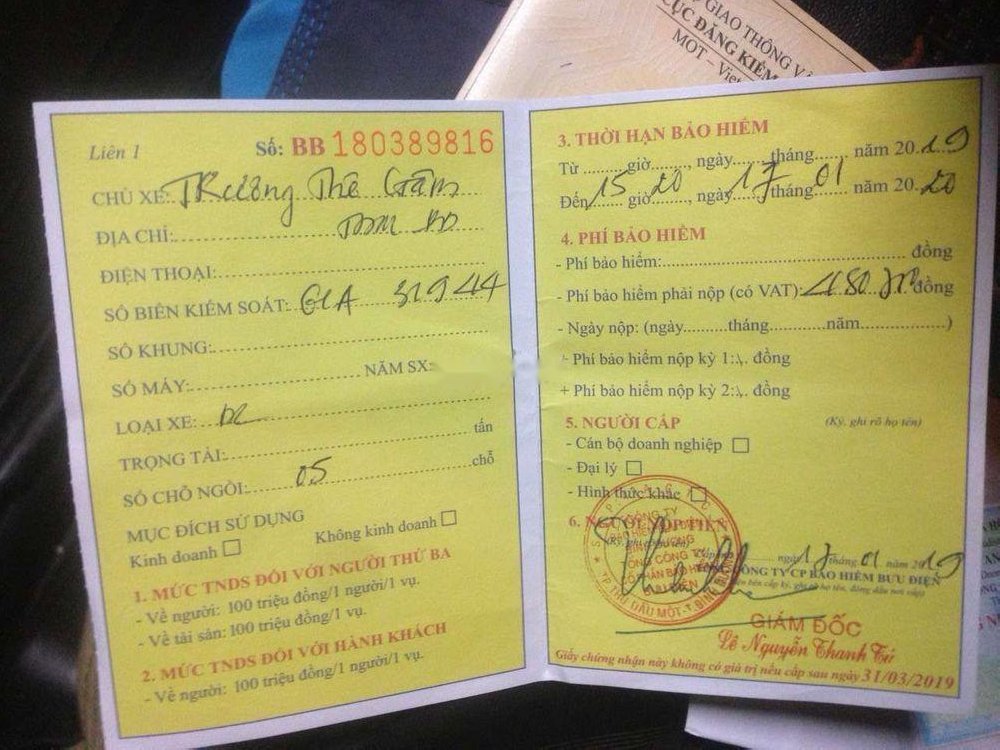 GIAO THÔNG VẬ
CỤC ĐĂNG KIỂM
MOT – Viet
Liên 1
Số: BB 180389816
CHỦ XE: Trương Thế
ĐỊA CHỈ:
ĐIỆN THOẠI:
SỐ BIÊN KIỂM SOÁT: 61A 31944
SỐ KHUNG:
SỐ MÁY: NĂM SX:
LOẠI XE:
TRỌNG TẢI: tấn
SỐ CHỖ NGỒI: 05 chỗ
MỤC ĐÍCH SỬ DỤNG
Kinh doanh Không kinh doanh
1. MỨC TNDS ĐỐI VỚI NGƯỜI THỨ BA
- Về người: 100 triệu đồng/1 người/1 vụ.
- Về tài sản: 100 triệu đồng/1 vụ.
2. MỨC TNDS ĐỐI VỚI HÀNH KHÁCH
- Về người: 100 triệu đồng/1 người/1 vụ.
3. THỜI HẠN BẢO HIỂM
Từ ......giờ......., ngày......tháng...... năm 20.19
Đến 15 giờ 20, ngày 17 tháng 01 năm 20.20
4. PHÍ BẢO HIỂM
- Phí bảo hiểm: đồng
- Phí bảo hiểm phải nộp (có VAT): đồng
- Ngày nộp: (ngày..........tháng............năm..................)
+ Phí bảo hiểm nộp kỳ 1:\. đồng
+ Phí bảo hiểm nộp kỳ 2:\. đồng
5. NGƯỜI CẤP (Ký, ghi rõ họ tên)
- Cán bộ doanh nghiệp
- Đại lý
- Hình thức khác
6. NGƯỜI NỘP TIỀN
ngày 17 tháng 01 năm 2019
TỔNG CÔNG TY CP BẢO HIỂM BƯU ĐIỆN
CÔNG TY
TỔNG CÔNG TY
CỔ PHẦN BẢO HIỂM
BƯU ĐIỆN
TP. THỦ DẦU MỘT - T. BÌNH
GIÁM ĐỐC
Lê Nguyễn Thanh Tú
Giấy chứng nhận này không có giá trị nếu cấp sau ngày 31/03/2019